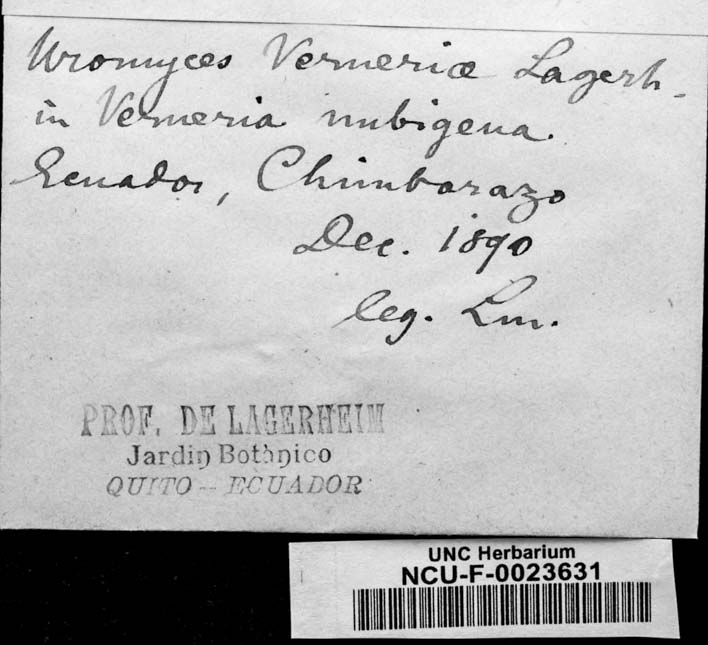 Uromyces Verneriæ Lagerh.
in Verneria nubigena.
Ecuador, Chimborazo
Dec. 1890
leg. Lm.
PROF. DE LAGERHEIM
Jardin Botànico
QUITO – ECUADOR
UNC Herbarium
NCU-F-0023631